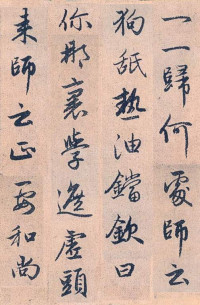 一一歸何處師云
狗舐熱油鐺欽曰
你那裏學這虛頭
来師云正要和尚